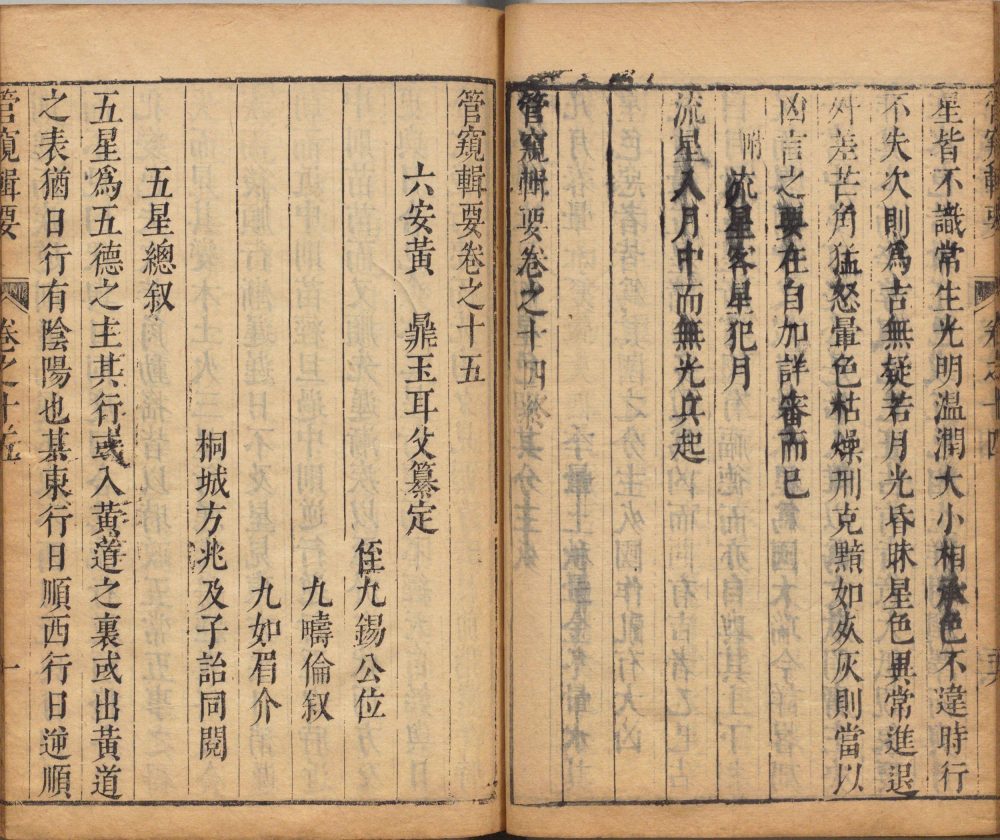 管窺輯要
卷之十四
星皆不識常生光明溫潤大小相承色不違時行
不失次則爲吉無疑若月光昏昧星色異常進退
舛差芒角猛怒暈色枯燥刑克黯如灰則當以
凶言之要在自加詳審而已
附
流星客星犯月
流星入月中而無光兵起
管窺輯要卷之十四終
管窺輯要卷之十五
六安黃 鼎玉耳父纂定
侄九錫公位
九疇倫叙
九如眉介
桐城方兆及子詒同閱
五星總叙
五星爲五德之主其行或入黃道之裏或出黃道
之表猶日行有陰陽也其東行日順西行日逆順
管窺輯要
卷之十五
一